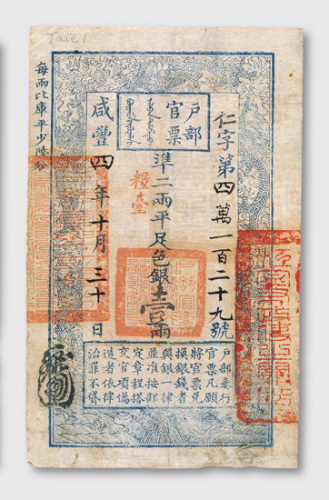 Tael 1
戶部官票
仁字第四萬一百二十九號
準二兩平足色銀壹兩
糧臺
咸豐四年十月三十日
每兩比庫平少陸分
戶部奏行
官票凡願
將官票兌
換銀錢者
與銀一律
並准按部
定章程搭
交官項偽
造者依律
治罪不貸